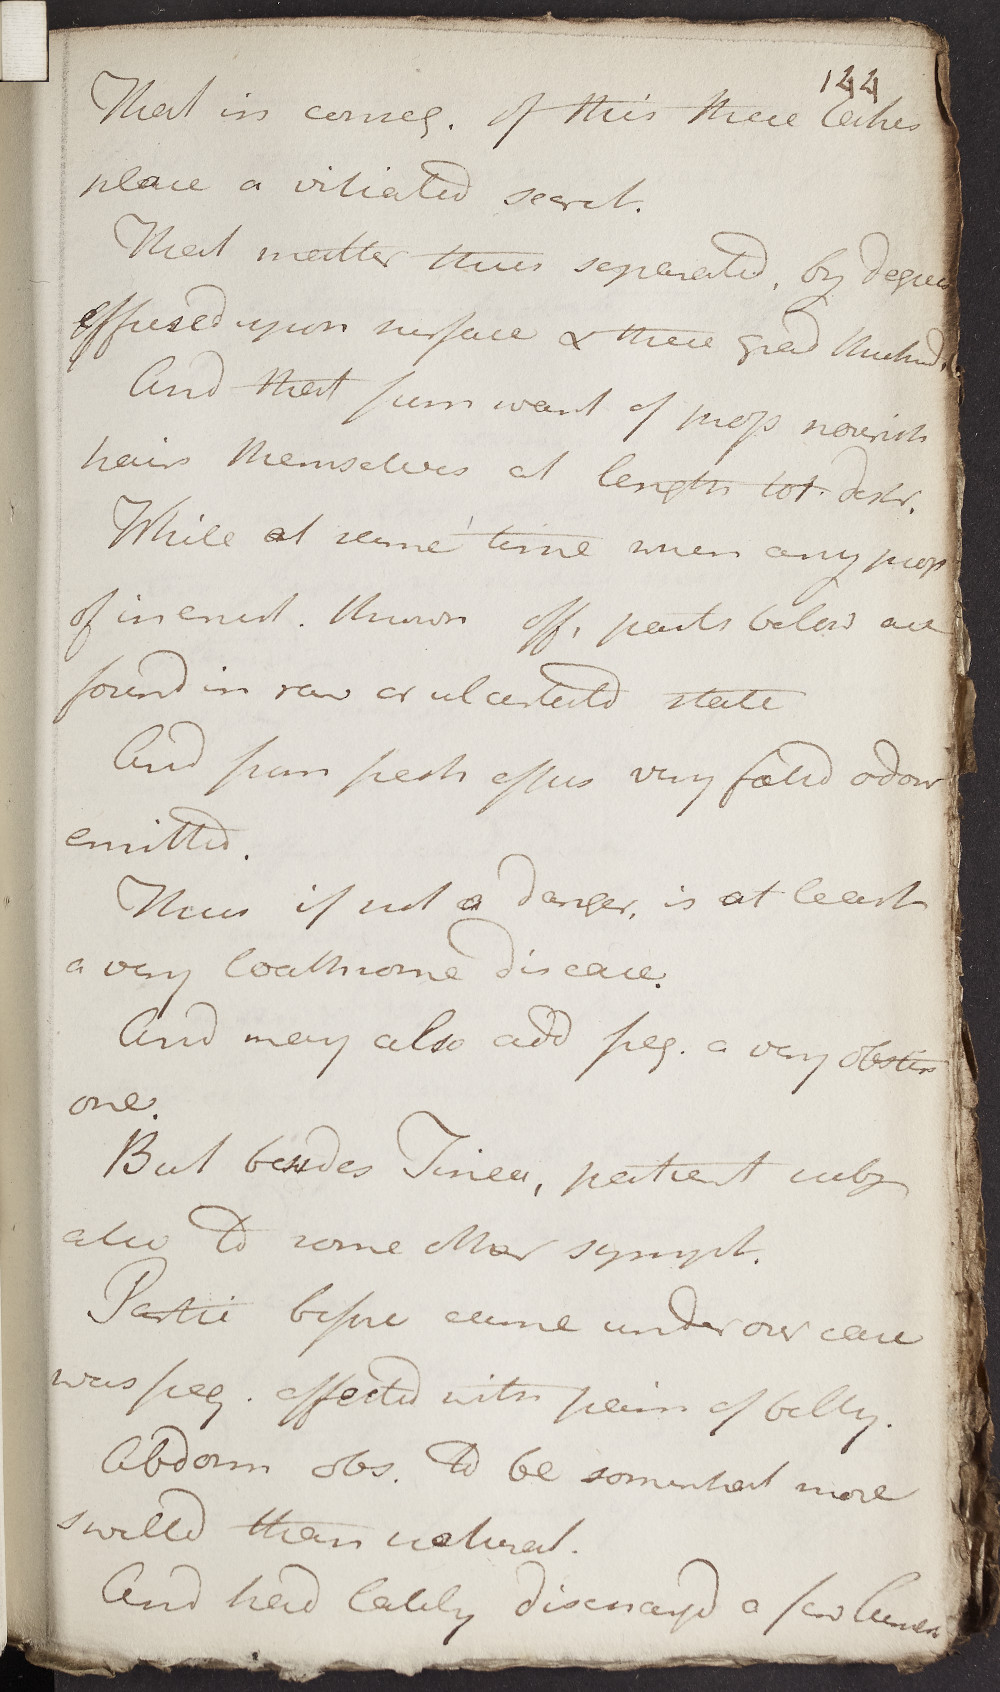 144
That in conseq. of this there takes
place a vitiated secret.
That matter thus separated, by degrees
effused upon surface & there grad thickend.
And that from want of prop nourish
hairs themselves at length tot. destr.
While at same time when any prop
of incrust. thrown off, parts below are
found in raw or ulcerated state
And from fresh effus very foetid odour
emitted.
Thus if not a danger, is at least
a very loathsome disease.
And may also add freq. a very obstin
one.
But besides Tinea, patient subj
also to some other sympt.
Partic before came under our care
was freq. affected with pain of belly.
Abdom obs. to be somewhat more
swelld than natural.
And had lately discharg'd a few Lumbr